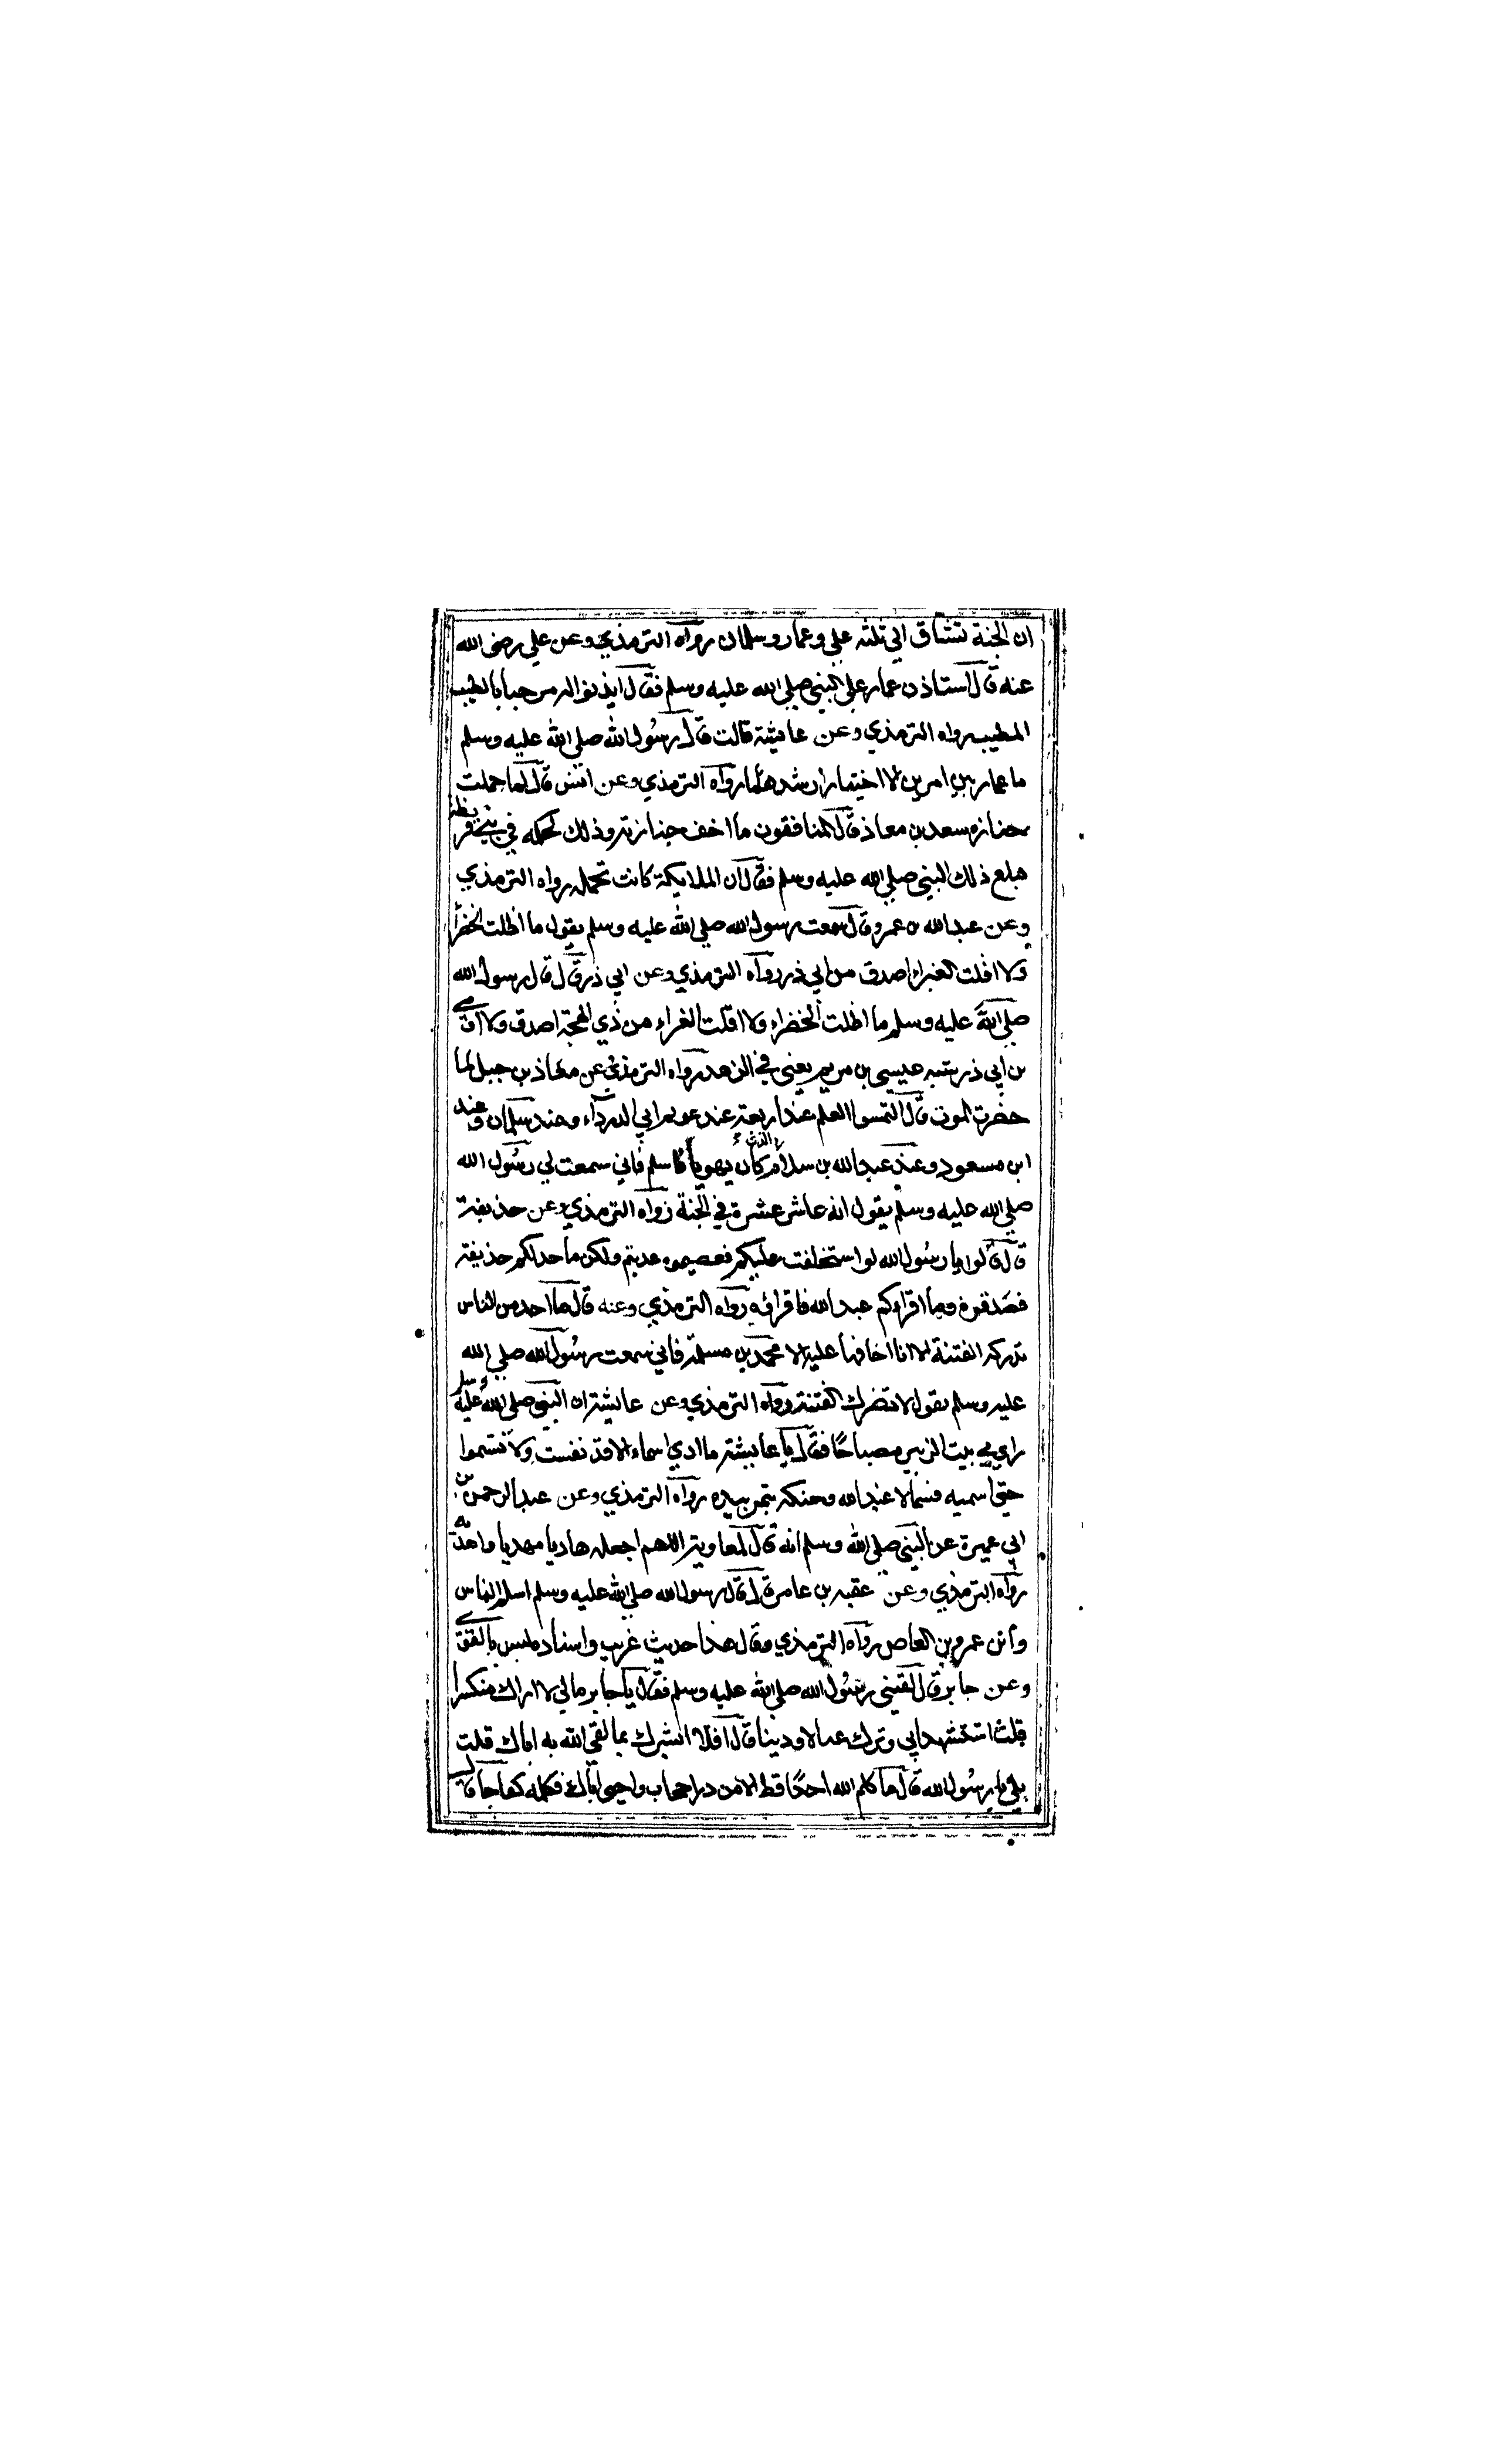 ان الجنة تشتاق الي ثلثه علي وعمار وسلمان رواه الترمذي وعن علي رضي الله
عنه قال استاذن عمار علي النبي صلي الله عليه وسلم فقال ايذنوا له مرحبا بالطيب
المطيب رواه الترمذي وعن عايشة قالت قال رسول الله صلي الله عليه وسلم
ما عمار بين امرين الا اختيار ارشدهما رواه الترمذي وعن انس قال لما حملت
جنازه سعد بن معاذ قال المنافقون ما اخف جنازته وذلك لحكمه في بني قريظة
فبلغ ذلك النبي صلي الله عليه وسلم فقال ان الملايكة كانت تحمله رواه الترمذي
وعن عبد الله بن عمرو قال سمعت رسول الله صلي الله عليه وسلم يقول ما اظلت الخضرا
ولا اقلت الغبراء اصدق من ابي ذر رواه الترمذي وعن ابي ذر قال قال رسول الله
صلي الله عليه وسلم ما اظلت الخضراء ولا اقلت الغبراء من ذي لهجة اصدق ولا اوفي
من ابي ذر شبه عيسي بن مريم يعني في الزهد رواه الترمذي عن معاذ بن جبل لما
حضرت الموت قال التمسوا العلم عند اربعة عند عويمر ابي الدرداء وعند سلمان وعند
ابن مسعود وعند عبد الله بن سلام الذي كان يهوديا فاسلم فاني سمعت لي رسول الله
صلي الله عليه وسلم يقول انه عاشر عشرة في الجنة رواه الترمذي وعن حذيفة
قال قالوا يا رسول الله لو استخلفت عليكم فعصيموه عذبتم ولكن ما حدثكم حذيفة
فصدقوه وما اقراكم عبد الله فاقرائه رواه الترمذي وعنه قال ما احد من الناس
تدركه الفتنة الا انا اخافها عليه الا محمد بن مسلمة فاني سمعت رسول الله صلي الله
عليه وسلم يقول لا تضرك الفتنة رواه الترمذي وعن عايشة ان النبي صلي الله عليه وسلم
راي في بيت الزبير مصباحا فقال يا عايشة ما اري اسماء الا قد نفست ولا تسموا
حتي اسميه فسماه عبد الله وحنكه بتمر بيده رواه الترمذي وعن عبد الرحمن بن
ابي عميرة عن النبي صلي الله وسلم انه قال لمعاوية اللهم اجعله هاديا مهديا واهد به
رواه الترمذي وعن عقبه بن عامر قال قال رسول الله صلي الله عليه وسلم اسلم الناس
وأمن عمرو بن العاص رواه الترمذي وقال هذا حديث غريب واسناده ليس بالقوي
وعن جابر قال لقيني رسول الله صلي الله عليه وسلم فقال يا جابر مالي لا اراك منكسرا
قلت استشهد ابي وترك عيالا ودينا قال افلا ابشرك بما لقي الله به اباك قلت
بلي يا رسول الله قال ما كلم الله احدا قط الا من وراء حجاب واحيي اباك فكلمه كفاحا قال